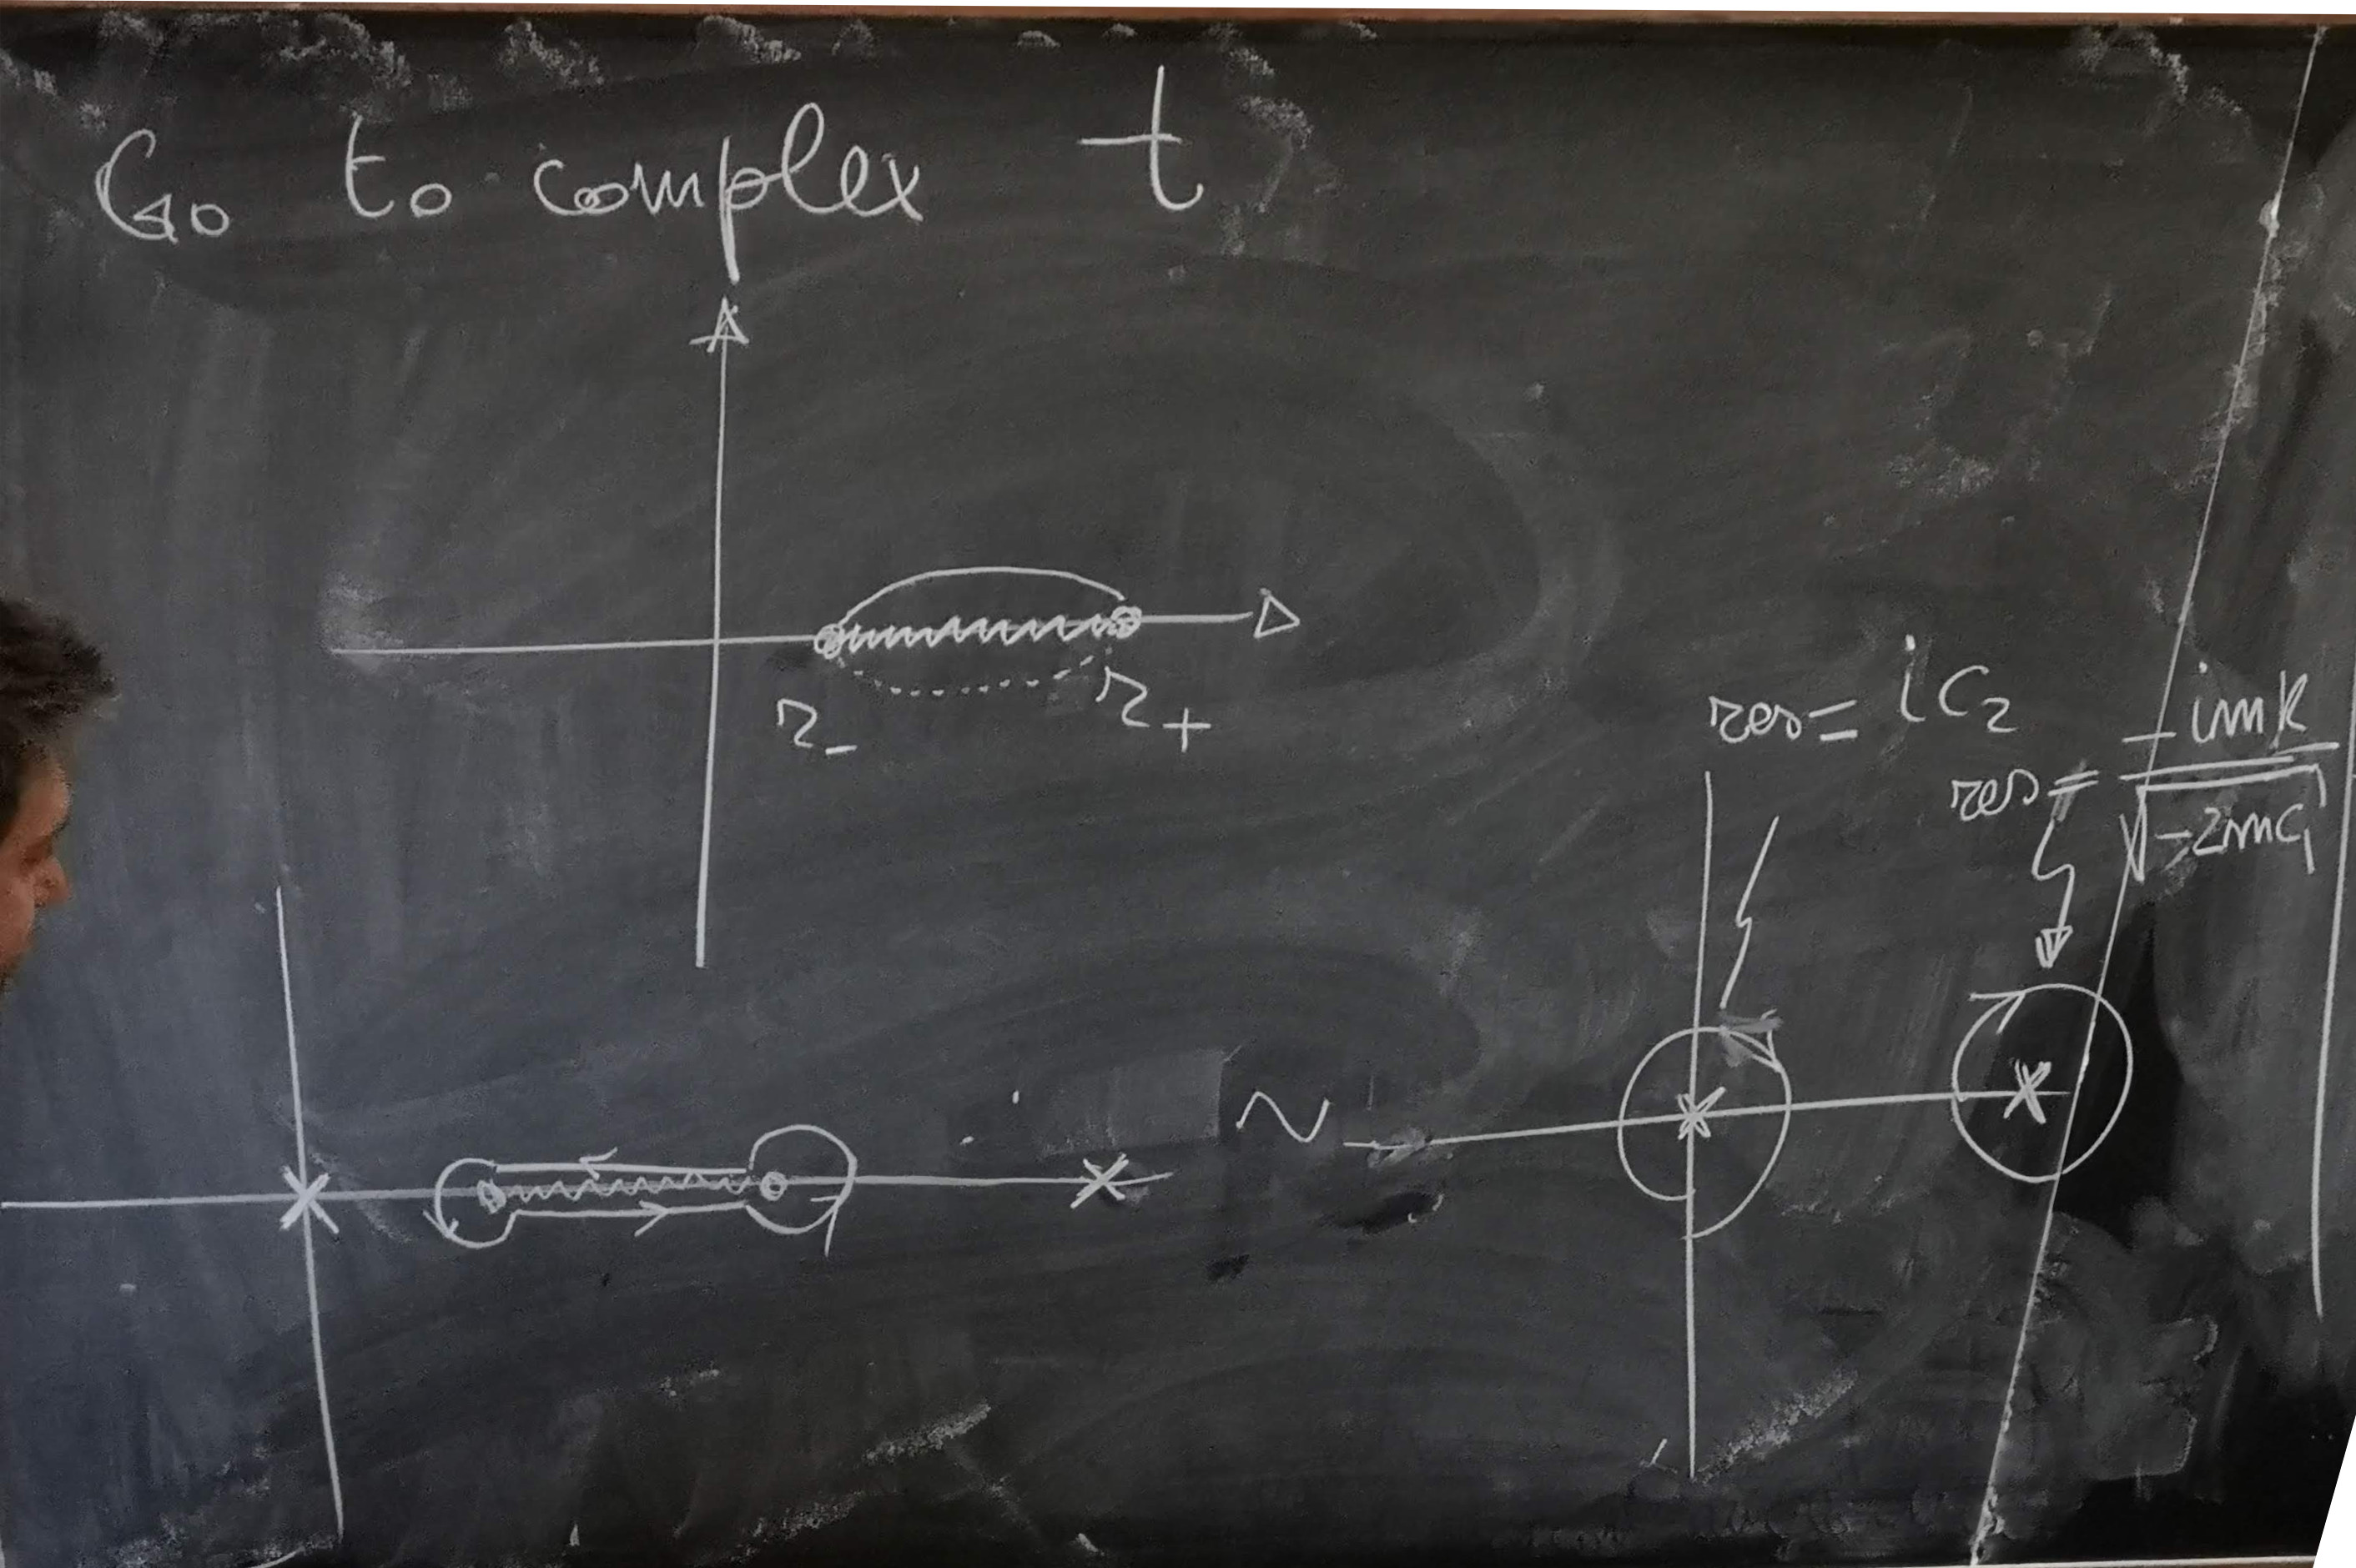 Go to complex t
r₋ r₊
res = i c₂
res = - imk / √(-2mc₁)
~